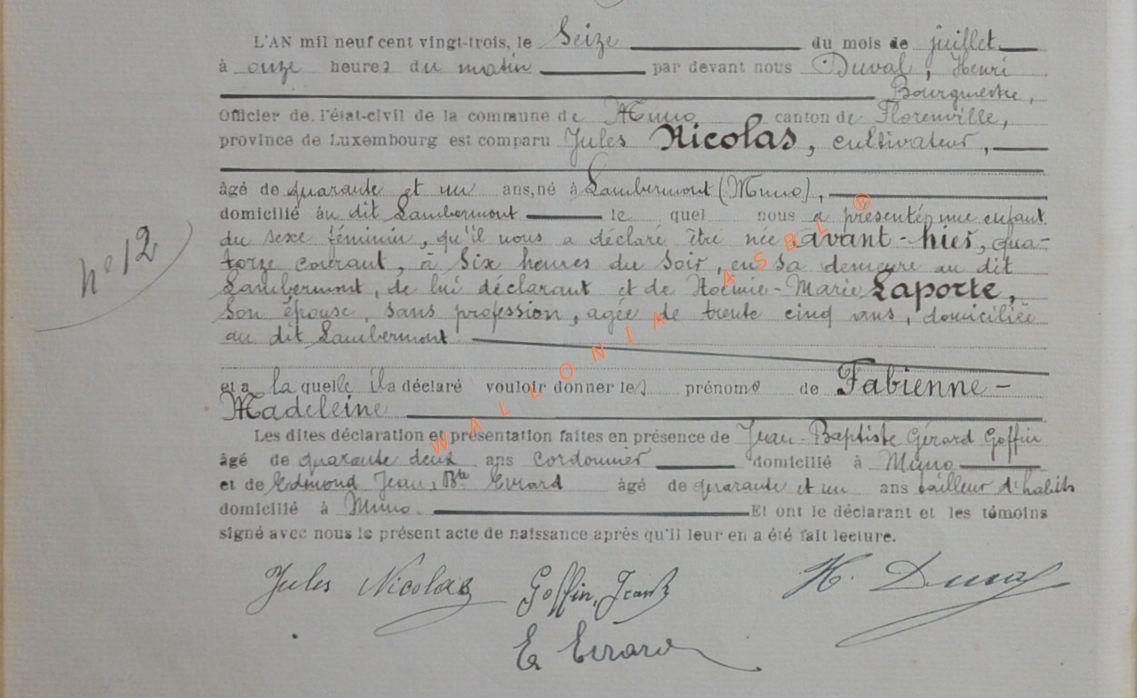 L'AN mil neuf cent vingt-trois, le Seize du mois de juillet
à onze heures du matin par devant nous Duval, Henri
Bourgmestre,
Officier de l'état-civil de la commune de Muno canton de Florenville,
province de Luxembourg est comparu Jules Nicolas, cultivateur,
âgé de quarante et un ans, né à Lambermont (Muno),
domicilié au dit Lambermont le quel nous a présenté, une enfant
N° 12
du sexe féminin, qu'il nous a déclaré être née avant-hier, qua-
torze courant, à six heures du soir, en sa demeure au dit
Lambermont, de lui déclarant et de Noémie-Marie Laporte,
Son épouse, sans profession, agée de trente cinq ans, domiciliée
au dit Lambermont
et a la quelle il a déclaré vouloir donner les prénoms de Fabienne-
Madeleine
Les dites déclaration et présentation faites en présence de Jean-Baptiste Gérard Goffin
âgé de quarante deux ans cordonnier domicilié à Muno
et de Edmond Jean, Bte Evrard âgé de quarante et un ans tailleur d'habits
domicilié à Muno. Et ont le déclarant et les témoins
signé avec nous le présent acte de naissance après qu'il leur en a été fait lecture.
Jules Nicolas Goffin, Jean B H. Duval
E Evrard
WALLONIA ASBL ®